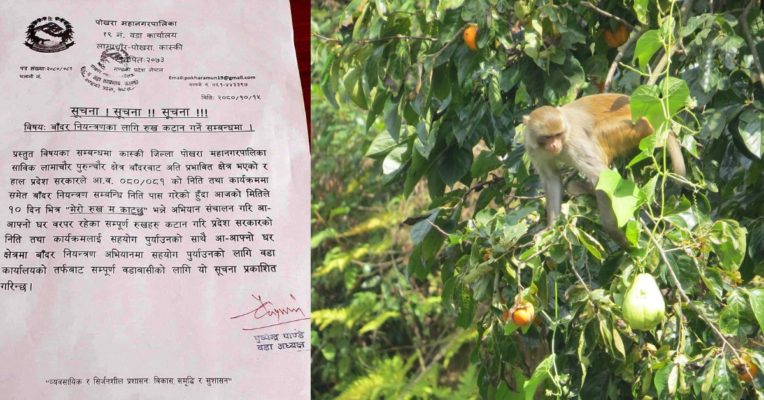 पोखरा महानगरपालिका
१९ नं. वडा कार्यालय
लामाचौर-पोखरा, कास्की
गण्डकी प्रदेश नेपाल
स्थापित-२०७३
पत्र संख्या:२०८०/०८१
चलानी नं.
Email:pokharamun19@gmail.com
मिति: २०८०/१०/१५
सूचना ! सूचना !! सूचना !!!
बिषयः बाँदर नियन्त्रणका लागि रुख कटान गर्ने सम्बन्धमा ।
प्रस्तुत विषयका सम्बन्धमा कास्की जिल्ला पोखरा महानगरपालिका
साविक लामाचौर पुरुन्चौर क्षेत्र बाँदरबाट अति प्रभावित क्षेत्र भएको र
हाल प्रदेश सरकारले आ.व. ०८०/०८१ को निति तथा कार्यक्रममा
समेत बाँदर नियन्त्रण सम्बन्धि निति पास गरेको हुँदा आजको मितिले
१० दिन भित्र "मेरो रुख म काट्छु" भन्ने अभियान संचालन गरि आ-
आफ्नो घर वरपर रहेका सम्पूर्ण रुखहरु कटान गरि प्रदेश सरकारको
निति तथा कार्यक्रमलाई सहयोग पुर्याउनको साथै आ-आफ्नो घर
क्षेत्रमा बाँदर नियन्त्रण अभियानमा सहयोग पुर्याउनको लागि वडा
कार्यालयको तर्फबाट सम्पूर्ण वडाबासीको लागि यो सूचना प्रकाशित
गरिन्छ।
पुष्पेन्द्र पाण्डे
वडा अध्यक्ष
"व्यवसायिक र सिर्जनशील प्रशासनः विकास समृद्धि र सुशासन"